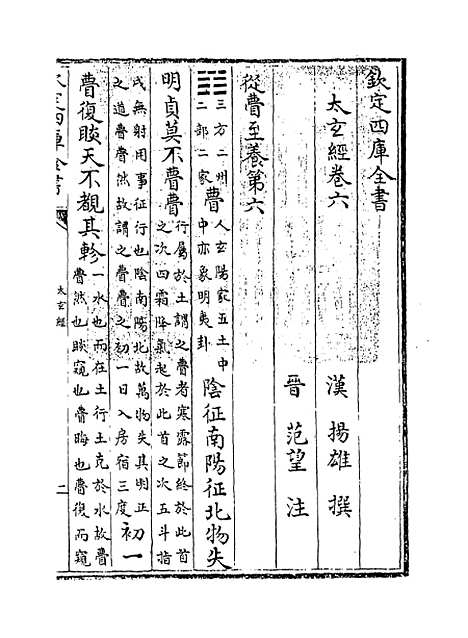 欽定四庫全書
太玄經卷六
漢 揚雄 撰
晉 范望 注
從瞢至養第六
三方二州二部二家 瞢 人玄陽家五土中中亦象明夷卦 陰征南陽征北物失
明貞莫不瞢瞢 行屬於土謂之瞢者寒露節終於此首之次四霜降氣起於此首之次五斗指
戌無射用事征行也陰南陽北故萬物失其明正之道瞢瞢然故謂之瞢瞢之初一日入房宿三度 初一
瞢復睒天不覩其畛 一水也而在土行土克於水故瞢瞢然也睒窺也瞢晦也瞢復而窺
欽定四庫全書
太玄經
二